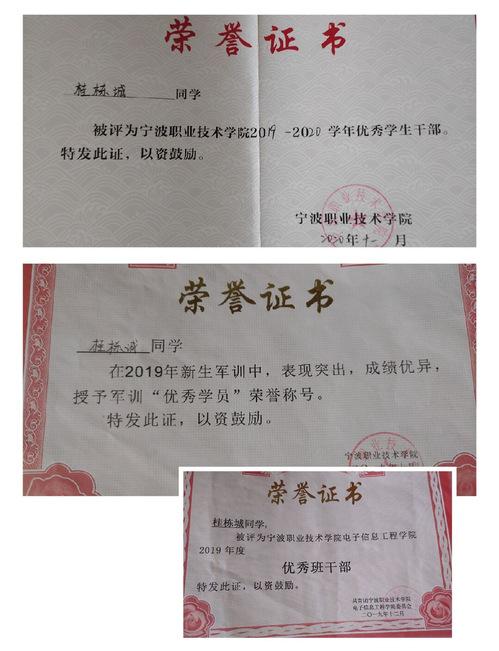 荣誉证书
桂栋城 同学
被评为宁波职业技术学院2019-2020学年优秀学生干部。
特发此证，以资鼓励。
宁波职业技术学院
2020年十一月
荣誉证书
桂栋诚 同学
在2019年新生军训中，表现突出，成绩优异，
授予军训“优秀学员”荣誉称号。
特发此证，以资鼓励。
宁波职业技术学院
荣誉证书
桂栋城同学，
被评为宁波职业技术学院电子信息工程学院
2019年度
优秀班干部
特发此证，以资鼓励。
共青团宁波职业技术学院
电子信息工程学院委员会
二〇一九年十二月